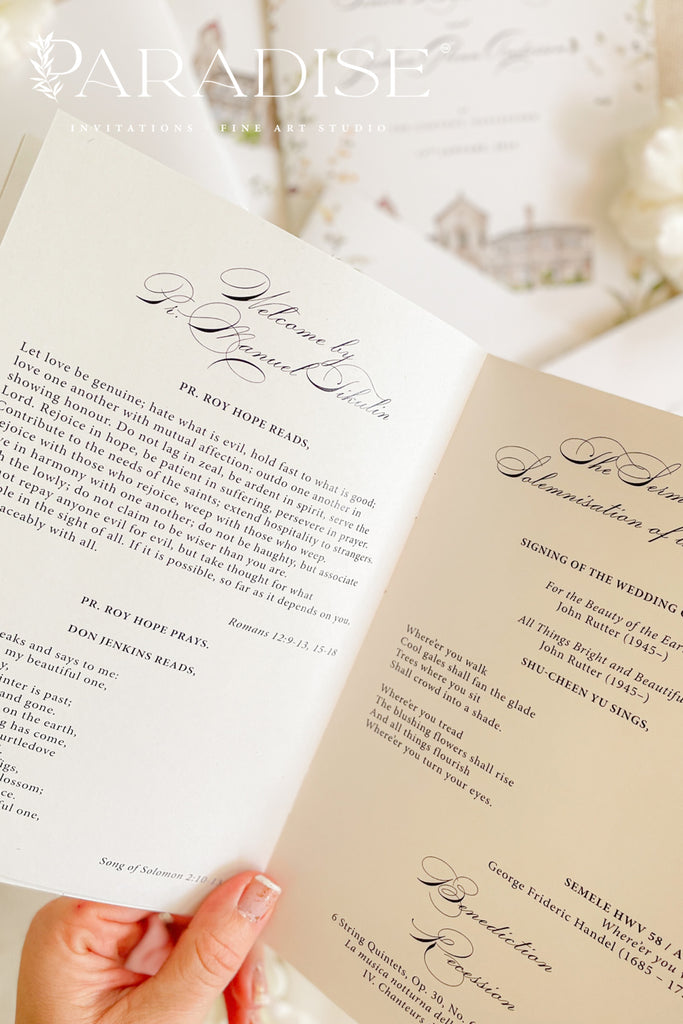 PARADISE©
INVITATIONS · FINE ART STUDIO
and
Welcome by
Pr. Manuel Jikulin
PR. ROY HOPE READS,
Let love be genuine; hate what is evil, hold fast to what is good;
love one another with mutual affection; outdo one another in
showing honour. Do not lag in zeal, be ardent in spirit, serve the
Lord. Rejoice in hope, be patient in suffering, persevere in prayer.
Contribute to the needs of the saints; extend hospitality to strangers.
ejoice with those who rejoice, weep with those who weep.
e in harmony with one another; do not be haughty, but associate
h the lowly; do not claim to be wiser than you are.
not repay anyone evil for evil, but take thought for what
ble in the sight of all. If it is possible, so far as it depends on you,
aceably with all.
Romans 12:9-13, 15-18
PR. ROY HOPE PRAYS.
DON JENKINS READS,
eaks and says to me:
my beautiful one,
y,
inter is past;
and gone.
on the earth,
g has come,
urtledove
figs,
lossom;
ce.
ful one,
Song of Solomon 2:10-13
The Serm
Solemnisation of t
SIGNING OF THE WEDDING
For the Beauty of the Ear
John Rutter (1945–)
All Things Bright and Beautifu
John Rutter (1945–)
SHU-CHEEN YU SINGS,
Where'er you walk
Cool gales shall fan the glade
Trees where you sit
Shall crowd into a shade.
Where'er you tread
The blushing flowers shall rise
And all things flourish
Where'er you turn your eyes.
SEMELE HWV 58 / A
Where'er you
George Frideric Handel (1685 – 17
Benediction
Recession
6 String Quintets, Op. 30, No. 6
La musica notturna del
IV. Chanteurs